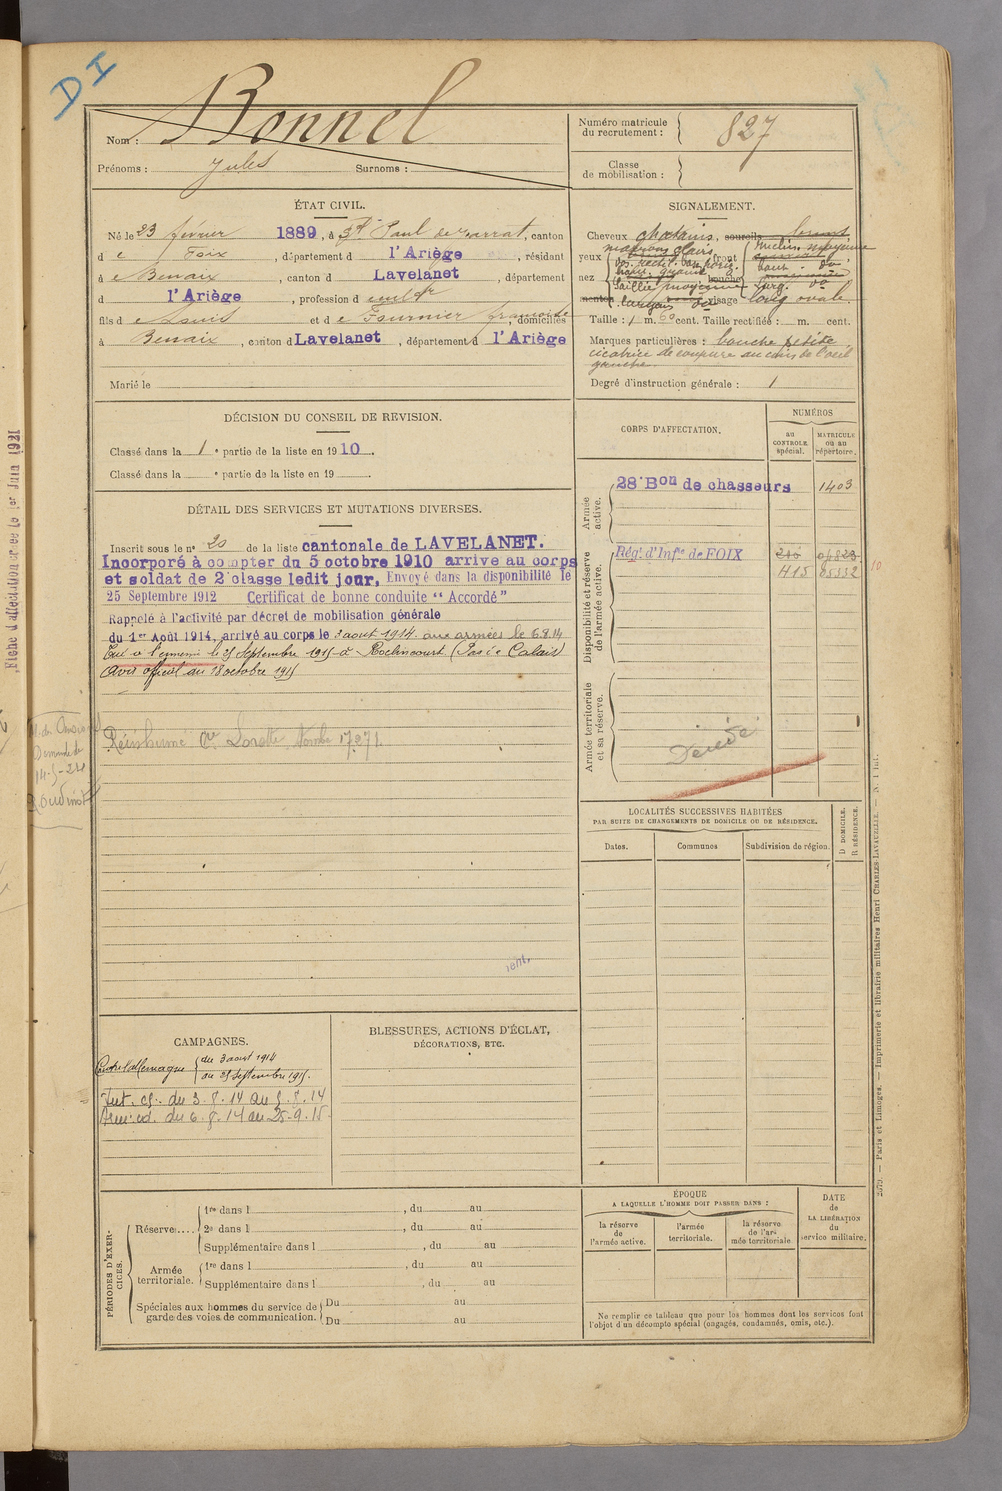 D I
Nom : Bonnel
Prénoms : Jules Surnoms :
Numéro matricule du recrutement : 827
Classe de mobilisation :
ÉTAT CIVIL.
Né le 23 février 1889, à St Paul de Jarrat, canton
d e Foix, département d l'Ariège, résidant
à e Benaix, canton d Lavelanet, département
d l'Ariège, profession de cultr
fils d e Louis et d e Fournier Françoise, domiciliés
à Benaix, canton d Lavelanet, département d l'Ariège
Marié le
SIGNALEMENT.
Cheveux chatains, sourcils bruns
yeux marrons clairs front
nez
bouche
menton visage long ovale
Taille : 1 m. 60 cent. Taille rectifiée : m. cent.
Marques particulières : bouche petite
cicatrice de coupure au coin de l'oeil
gauche
Degré d'instruction générale : 1
DÉCISION DU CONSEIL DE REVISION.
Classé dans la 1 e partie de la liste en 1910.
Classé dans la e partie de la liste en 19 .
DÉTAIL DES SERVICES ET MUTATIONS DIVERSES.
Inscrit sous le n° 20 de la liste cantonale de LAVELANET.
Incorporé à compter du 5 octobre 1910 arrive au corps
et soldat de 2e classe ledit jour. Envoyé dans la disponibilité le
25 Septembre 1912 Certificat de bonne conduite "Accordé"
Rappelé à l'activité par décret de mobilisation générale
du 1er Août 1914, arrivé au corps le 3 aout 1914. aux armées le 6.8.14
Tué à l'ennemi le 25 Septembre 1915 à Roclincourt (Pas de Calais)
Avis officiel du 18 octobre 1915
Réinhumé Lorette Tombe 17271
CORPS D'AFFECTATION.
NUMÉROS
au CONTROLE spécial.
MATRICULE ou au répertoire.
Armée active.
28e Bon de chasseurs 1403
Disponibilité et réserve de l'armée active.
Régt d'Infie de FOIX 210 06823
415 05332
10
Armée territoriale et sa réserve.
Décédé
LOCALITÉS SUCCESSIVES HABITÉES
PAR SUITE DE CHANGEMENTS DE DOMICILE OU DE RÉSIDENCE.
Dates.
Communes
Subdivision de région.
D DOMICILE.
R RÉSIDENCE.
CAMPAGNES.
Contre l'allemagne du 3 aout 1914
au 25 Septembre 1915.
Int. cp. du 3.8.14 au 5.8.14
Arm. cd. du 6.8.14 au 25.9.15
BLESSURES, ACTIONS D'ÉCLAT,
DÉCORATIONS, ETC.
PÉRIODES D'EXERCICES.
Réserve....
1re dans l , du au
2e dans l , du au
Supplémentaire dans l , du au
Armée territoriale.
1re dans l , du au
Supplémentaire dans l , du au
Spéciales aux hommes du service de garde des voies de communication.
Du au
Du au
ÉPOQUE
A LAQUELLE L'HOMME DOIT PASSER DANS :
la réserve de l'armée active.
l'armée territoriale.
la réserve de l'armée territoriale
DATE de LA LIBÉRATION du service militaire.
Ne remplir ce tableau que pour les hommes dont les services font
l'objet d'un décompte spécial (engagés, condamnés, omis, etc.).
Paris et Limoges. — Imprimerie et librairie militaires Henri CHARLES-LAVAUZELLE.
Fiche d'affectation créée le 1er Juin 1921
Demande du
14-5-24